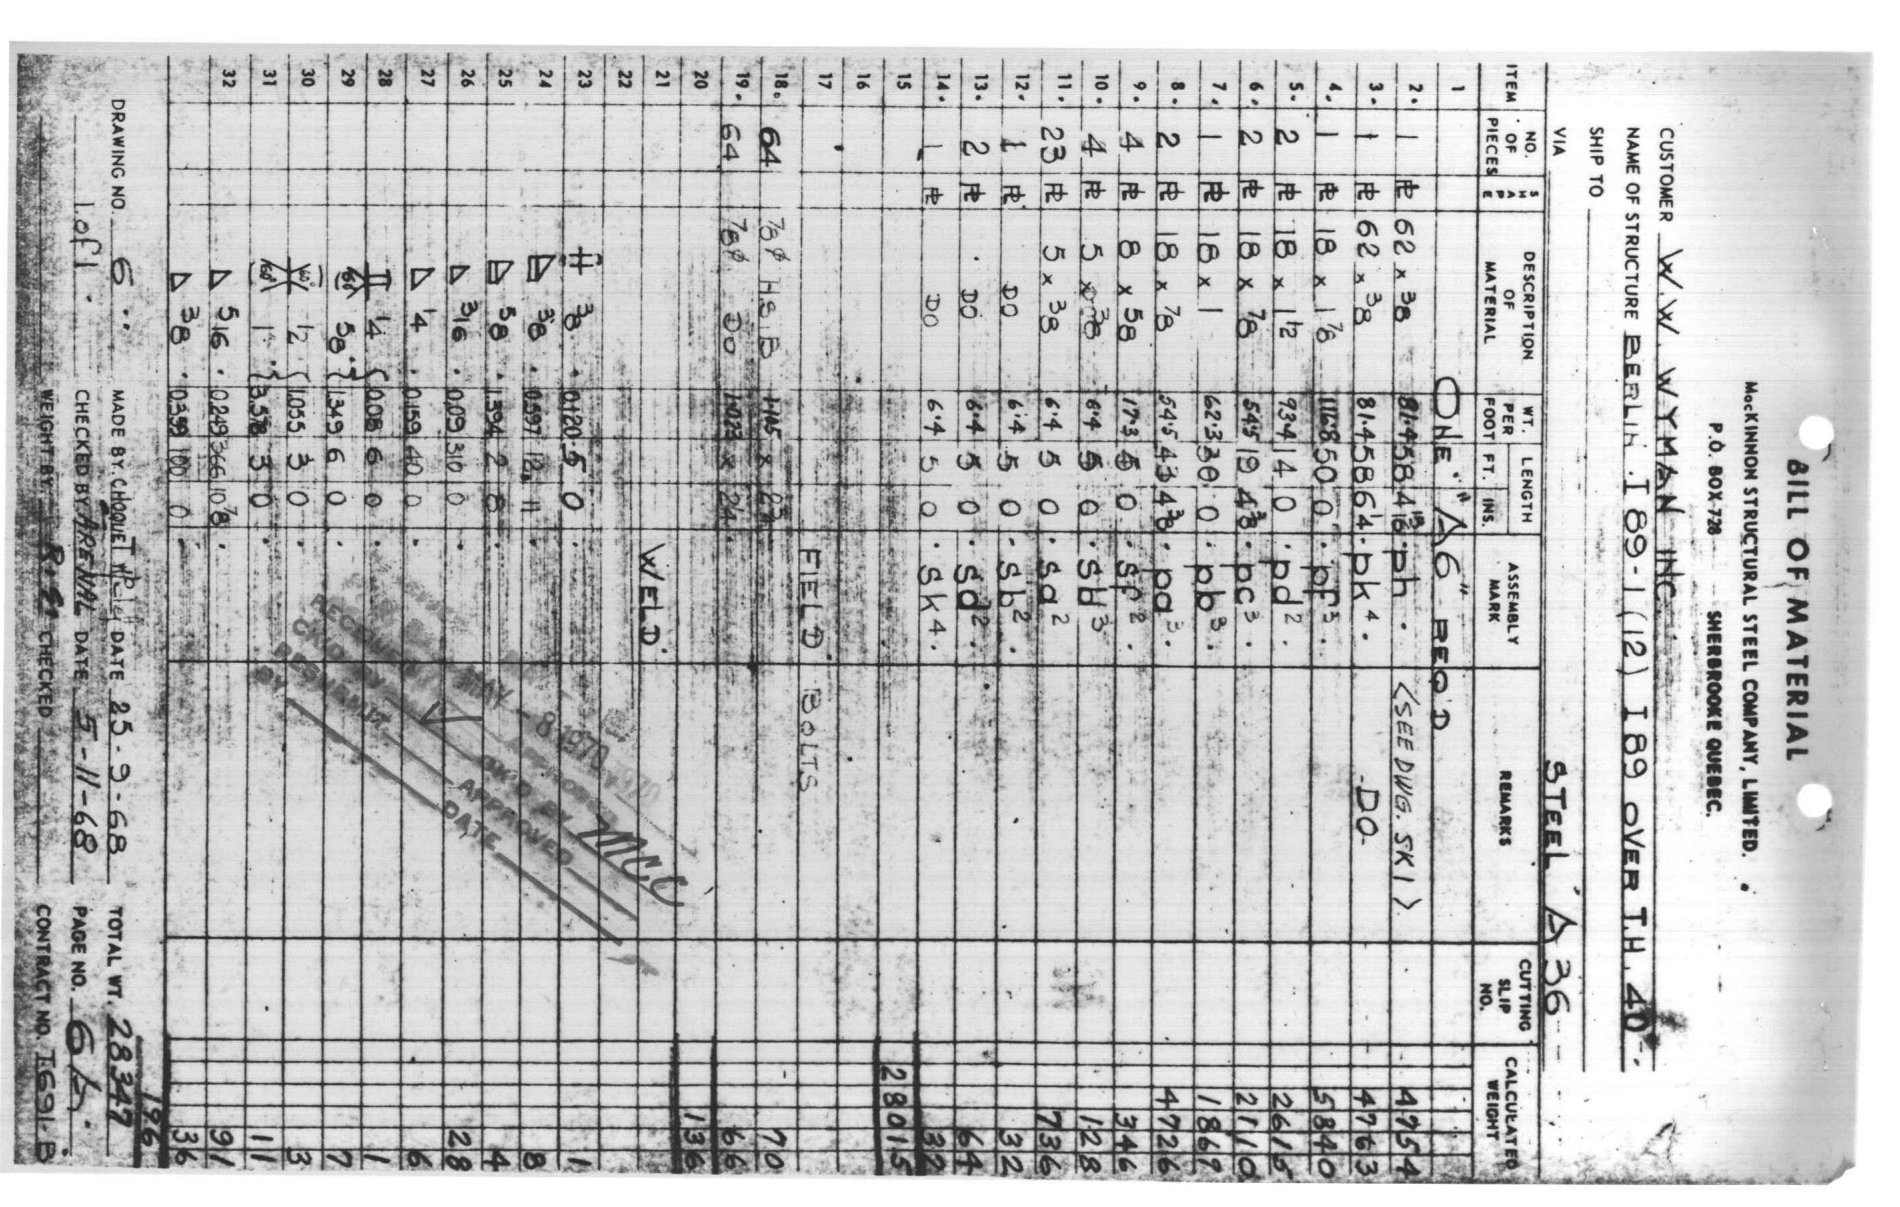 BILL OF MATERIAL
MacKINNON STRUCTURAL STEEL COMPANY, LIMITED.
P.O. BOX-728 SHERBROOKE QUEBEC.
CUSTOMER W.W. WYMAN INC
NAME OF STRUCTURE BERLIN I 89-1 (12) I 89 OVER T.H. 40
SHIP TO
VIA STEEL A 36
ITEM NO. OF PIECES SHAPE DESCRIPTION OF MATERIAL WT. PER FOOT LENGTH FT. INS. ASSEMBLY MARK REMARKS CUTTING SLIP NO. CALCULATED WEIGHT
1 ONE "A6" REQ'D
2. 1 PL 62 x 3/8 58 4 13/16 ph <SEE DWG. SK1> 4954
3. 1 PL 62 x 3/8 81.4 58 6 1/4 pk4 DO 4763
4. 1 PL 18 x 1 7/8 116.8 50 0 pf3 5840
5. 2 PL 18 x 1 1/2 93.4 14 0 pd2 2615
6. 2 PL 18 x 7/8 54.5 19 4 3/8 pc3 2110
7. 1 PL 18 x 1 62.3 30 0 pb3 1869
8. 2 PL 18 x 7/8 54.5 43 4 3/8 pa3 4726
9. 4 PL 8 x 5/8 17.3 5 0 sp2 346
10. 4 PL 5 x 3/8 6.4 5 0 sd3 128
11. 23 PL 5 x 3/8 6.4 5 0 sa2 736
12. 1 PL DO 6.4 5 0 sb2 32
13. 2 PL DO 6.4 5 0 sd2 64
14. 1 PL DO 6.4 5 0 sk4 32
15 28015
16
17 FIELD BOLTS
18. 64 7/8 φ H.S.B 70
19. 64 7/8 φ DO 66
20 136
21 WELD
22
23 3/8 0.120 5 0 1
24 3/8 0.597 12 11 8
25 5/8 1.394 2 8 4
26 3/16 0.09 310 0 28
27 1/4 0.159 40 0 6
28 1/4 0.08 6 0 1
29 5/8 1.349 6 0 7
30 1/2 1.055 3 0 3
31 1 3.578 3 0 11
32 5/16 0.249 366 10 7/8 91
3/8 0.359 100 0 36
196
MAY - 8 1970
CK'D BY MCC
APPROVED
DATE
RESUBMIT
BY
DRAWING NO. 6 MADE BY CHOQUET DATE 25-9-68 TOTAL WT. 28347
1 of 1 CHECKED BY ARENAL DATE 5-11-68 PAGE NO. 6 A
WEIGHT BY CHECKED CONTRACT NO. T-691-B